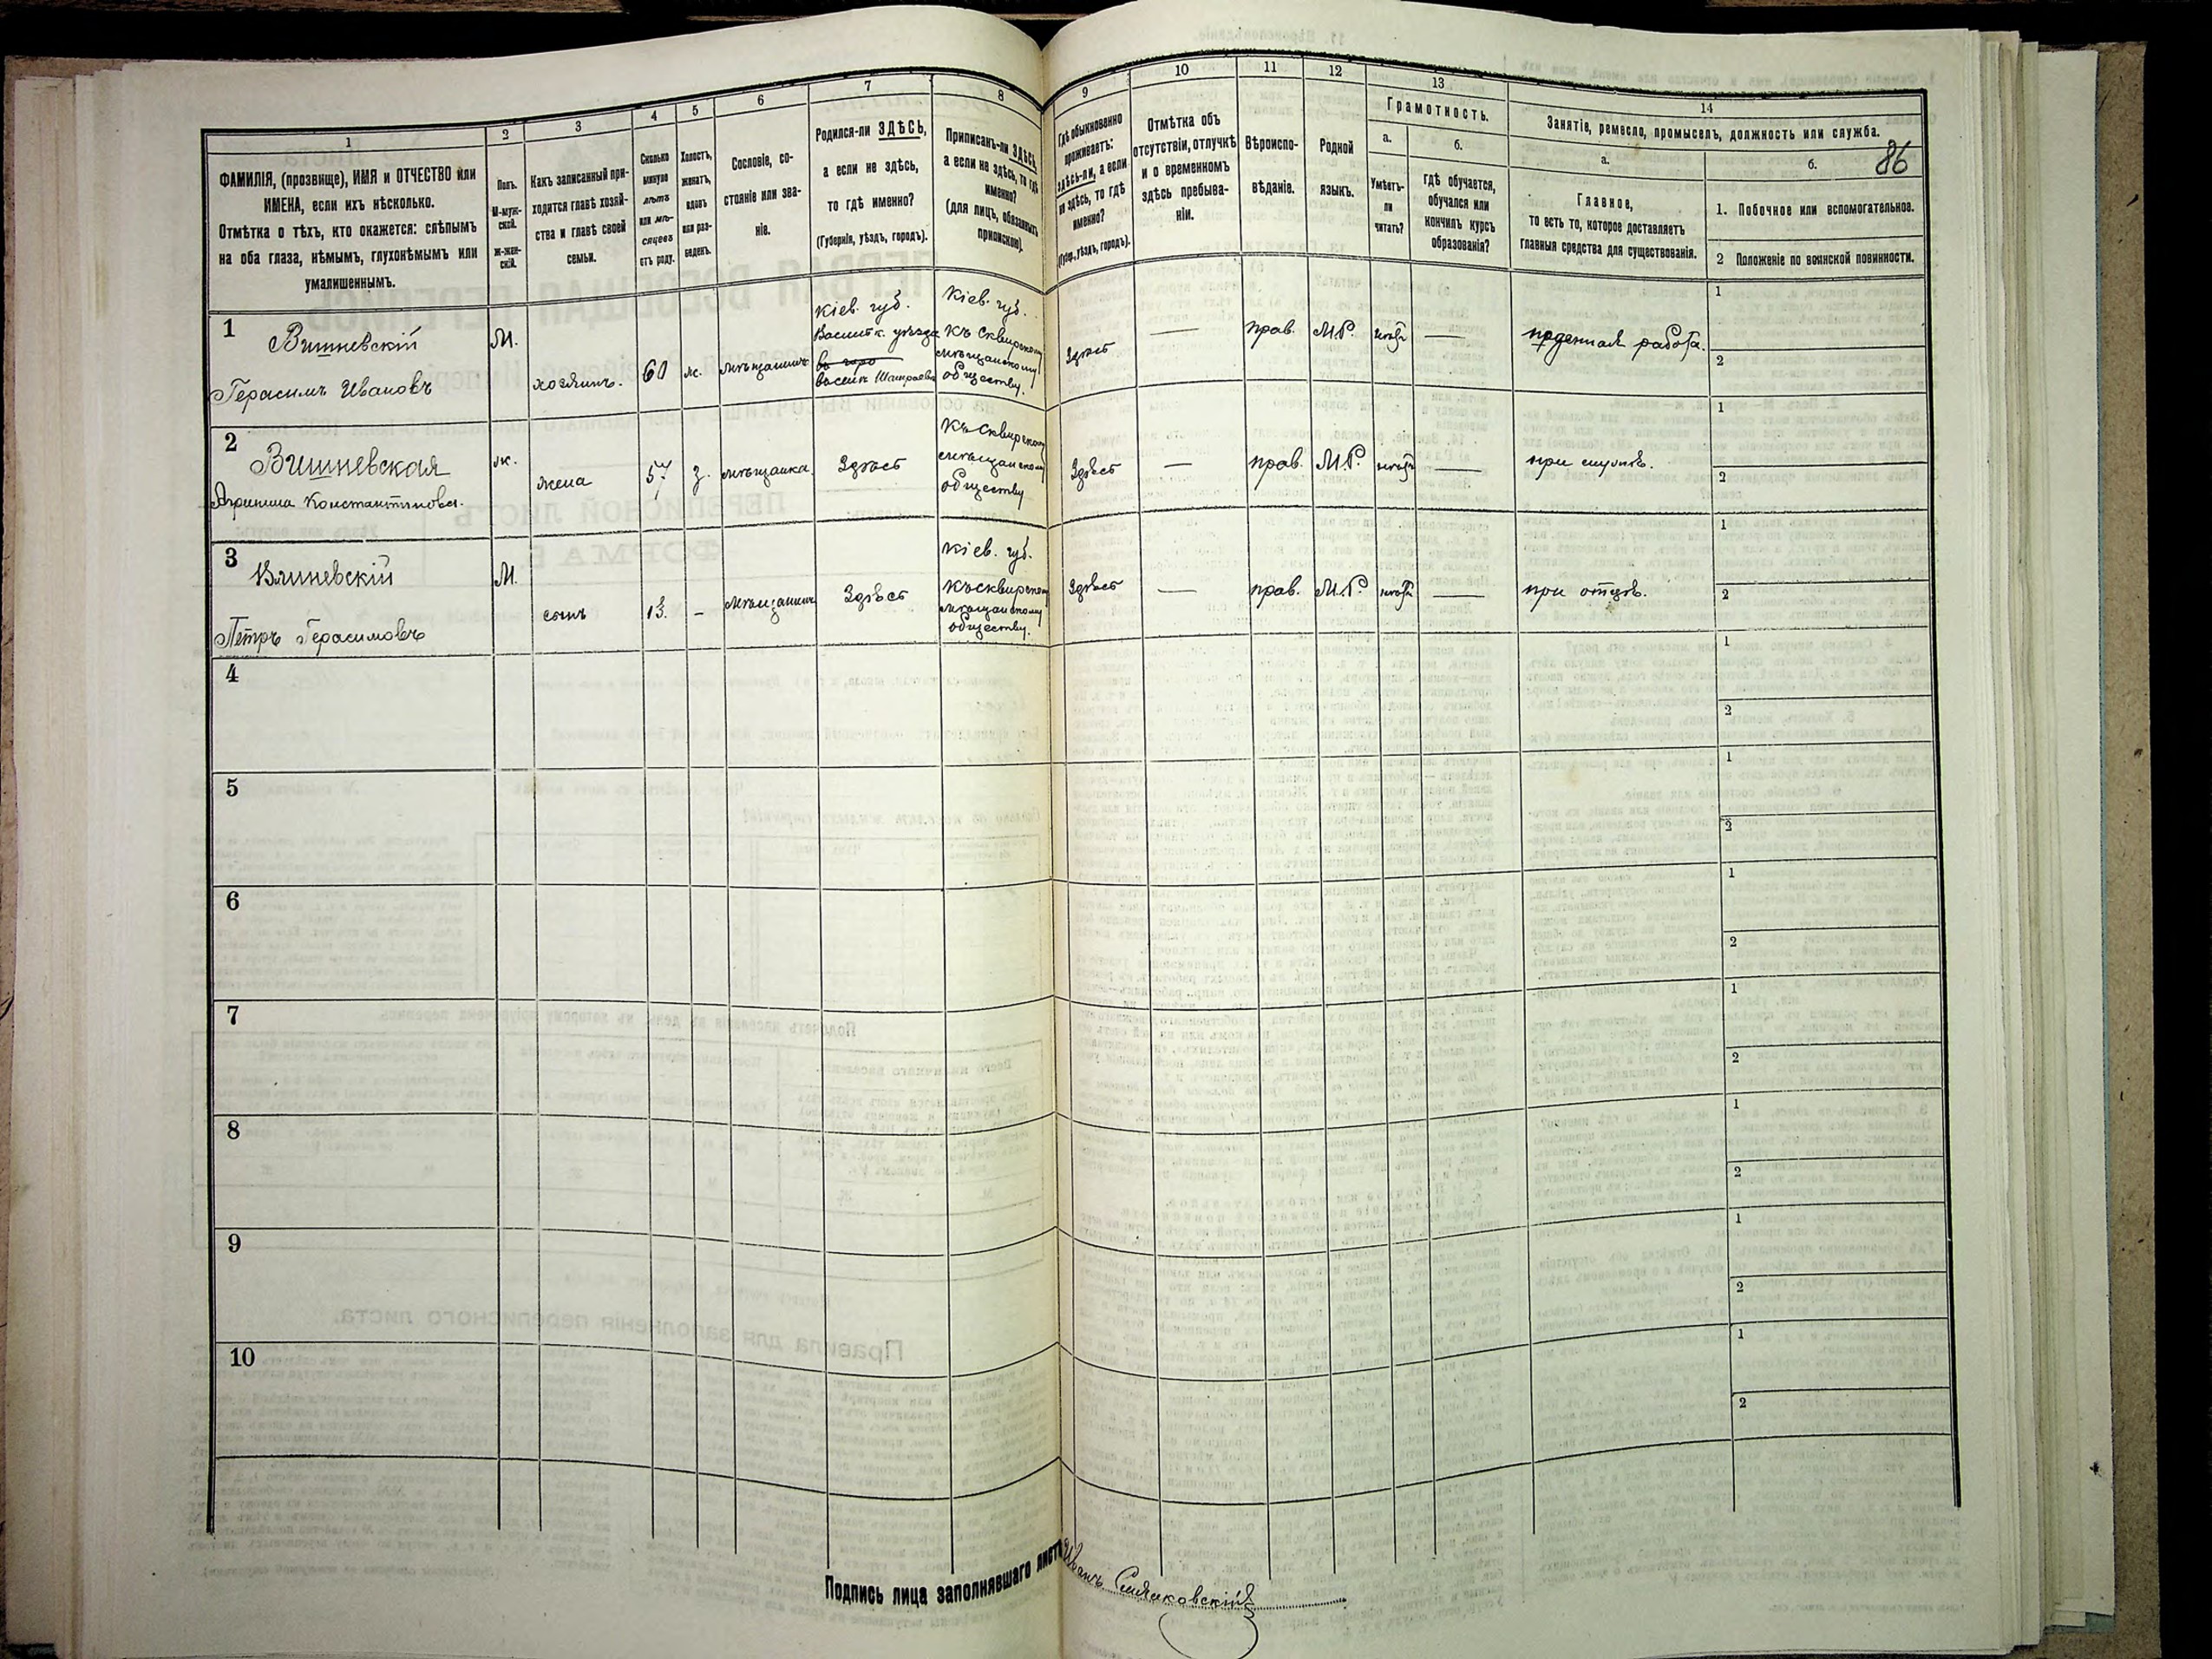 1
2
3
4
5
6
7
8
9
10
11
12
13
14
86
ФАМИЛІЯ, (прозвище), ИМЯ и ОТЧЕСТВО или
ИМЕНА, если ихъ нѣсколько.
Отмѣтка о тѣхъ, кто окажется: слѣпымъ
на оба глаза, нѣмымъ, глухонѣмымъ или
умалишеннымъ.
Полъ.
М-муж-
ской.
Ж-жен-
скій.
Какъ записанный при-
ходится главѣ хозяй-
ства и главѣ своей
семьи.
Сколько
минуло
лѣтъ
или мѣ-
сяцевъ
отъ роду.
Холостъ,
женатъ,
вдовъ
или раз-
веденъ.
Сословіе, со-
стояніе или зва-
ніе.
Родился-ли ЗДѢСЬ,
а если не здѣсь,
то гдѣ именно?
(Губернія, уѣздъ, городъ).
Приписанъ-ли ЗДѢСЬ,
а если не здѣсь, то гдѣ
именно?
(для лицъ, обязанныхъ
припискою).
Гдѣ обыкновенно
проживаетъ:
здѣсь-ли, а если
не здѣсь, то гдѣ
именно?
(Губер., уѣздъ, городъ).
Отмѣтка объ
отсутствіи, отлучкѣ
и о временномъ
здѣсь пребыва-
ніи.
Вѣроиспо-
вѣданіе.
Родной
языкъ.
Грамотность.
а.
Умѣетъ-
ли
читать?
б.
гдѣ обучается,
обучался или
кончилъ курсъ
образованія?
Занятіе, ремесло, промыселъ, должность или служба.
а.
Главное,
то есть то, которое доставляетъ
главныя средства для существованія.
б.
1. Побочное или вспомогательное.
2 Положеніе по воинской повинности.
1
Вишневскій
Герасимъ Ивановъ
М.
хозяинъ.
60
ж.
мѣщанинъ
Кіев. губ.
Васильк. уѣзда
Кіев. губ.
Къ Сквирскому
мѣщанскому
обществу.
Здѣсь
—
прав.
М.Р.
—
поденная работа.
1
2
2
Вишневская
Константинова.
ж.
жена
57
з.
мѣщанка
Здѣсь
Къ Сквирскому
мѣщанскому
обществу
Здѣсь
—
прав.
М.Р.
—
при мужѣ.
1
2
3
Вишневскій
Петръ Герасимовъ
М.
сынъ
13.
–
мѣщанинъ
Здѣсь
Кіев. губ.
Къ Сквирскому
мѣщанскому
обществу.
Здѣсь
—
прав.
М.Р.
—
при отцѣ.
1
2
4
1
2
5
1
2
6
1
2
7
1
2
8
1
2
9
1
2
10
1
2
Подпись лица заполнявшаго листъ
Иванъ